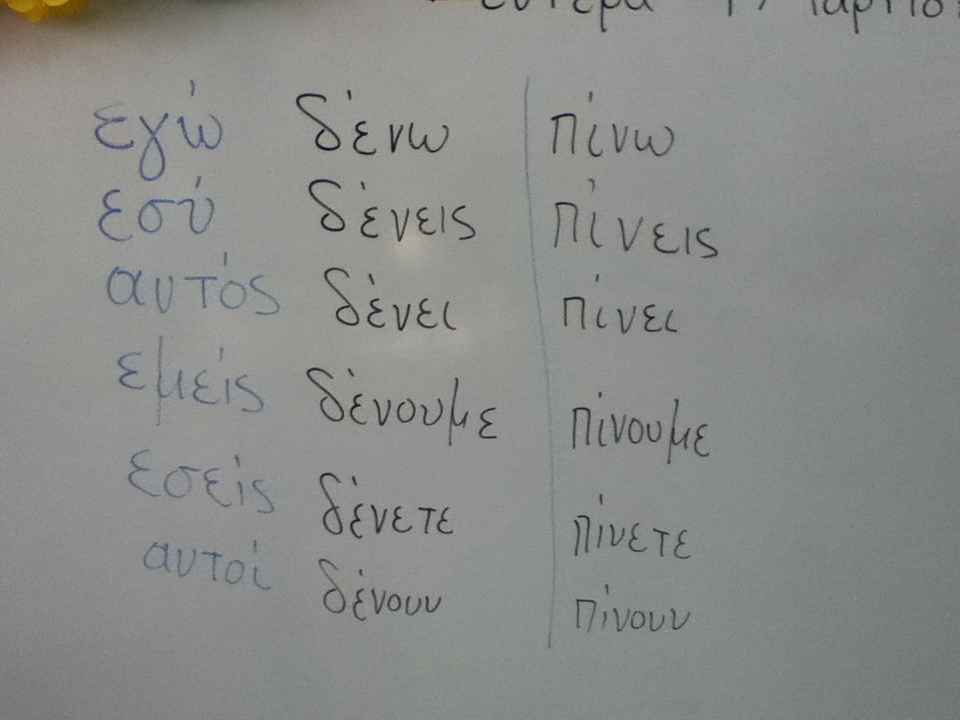 εγώ δένω πίνω
εσύ δένεις πίνεις
αυτός δένει πίνει
εμείς δένουμε πίνουμε
εσείς δένετε πίνετε
αυτοί δένουν πίνουν